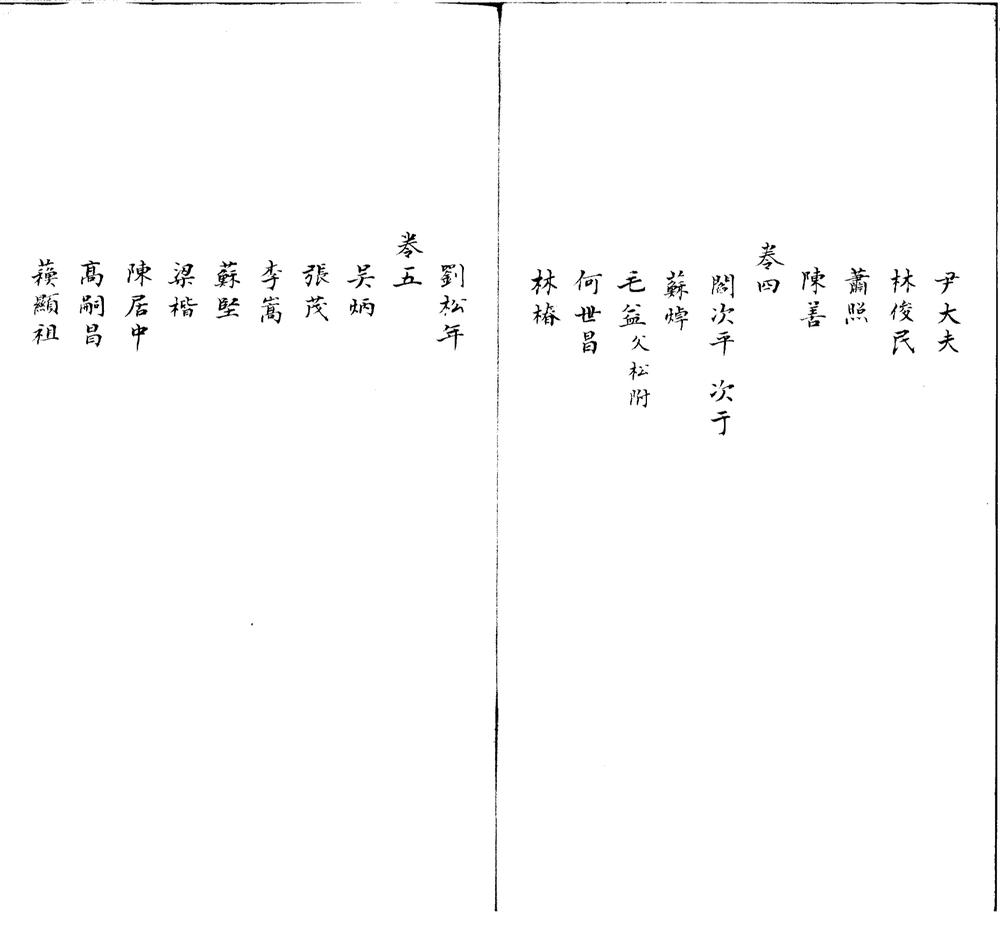 尹大夫
林俊民
蕭照
陳善
卷四
閻次平 次于
蘇焯
毛益父松附
何世昌
林椿
劉松年
卷五
吳炳
張茂
李嵩
蘇堅
梁楷
陳居中
高嗣昌
蘇顯祖